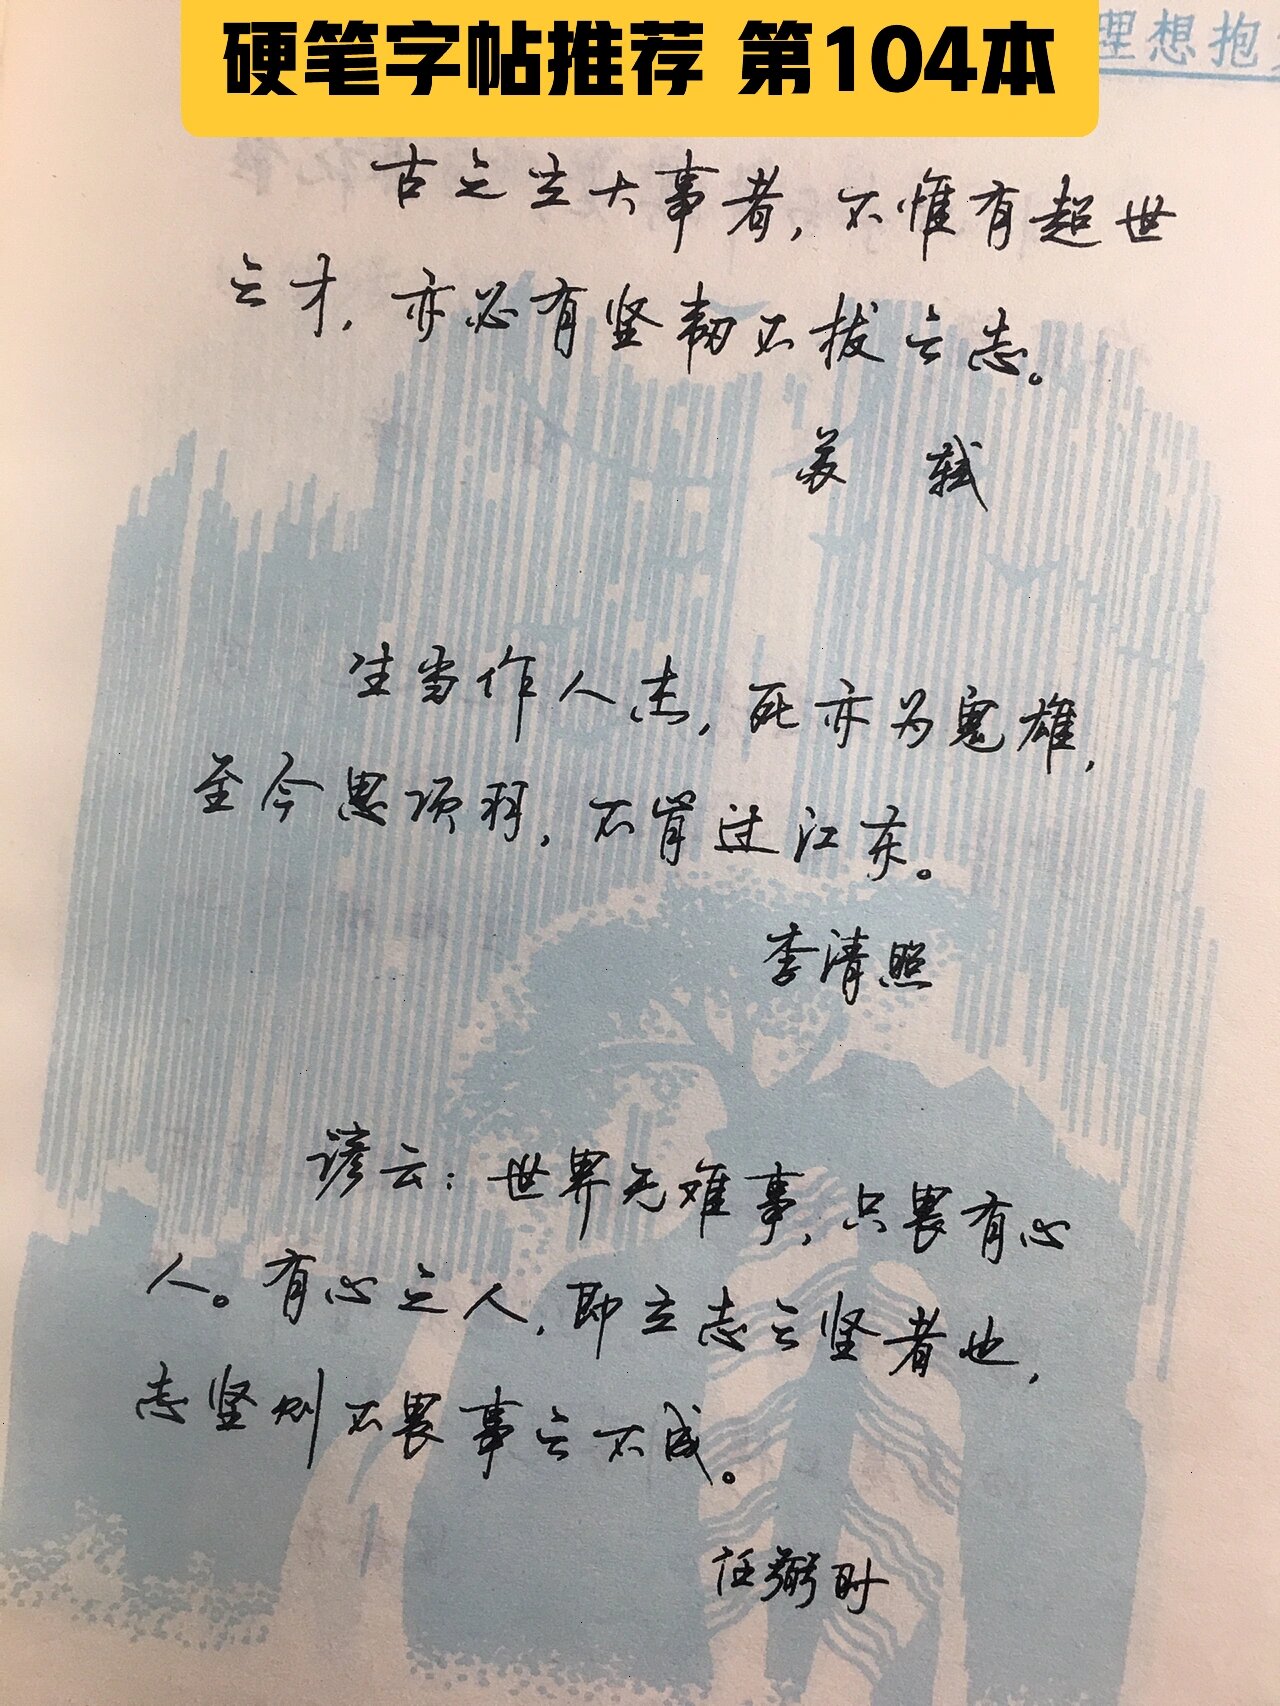 硬笔字帖推荐 第104本
理想抱
古之立大事者，不惟有超世
之才，亦必有坚韧不拔之志。
苏 轼
生当作人杰，死亦为鬼雄，
至今思项羽，不肯过江东。
李清照
谚云：世界无难事，只畏有心
人。有心之人，即立志之坚者也，
志坚则不畏事之不成。
任弼时